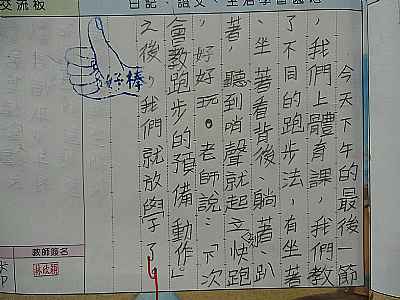 日記、語文、生活學習園地
交流板
今天下午的最後一節
，我們上體育課，我們教
了不同的跑步法，有坐著
、坐著看背後、躺著、趴
著，聽到哨聲就起立快跑
，好好玩。老師說：「下次
會教跑步的預備動作」
之後，我們就放學了。
好棒
教師簽名